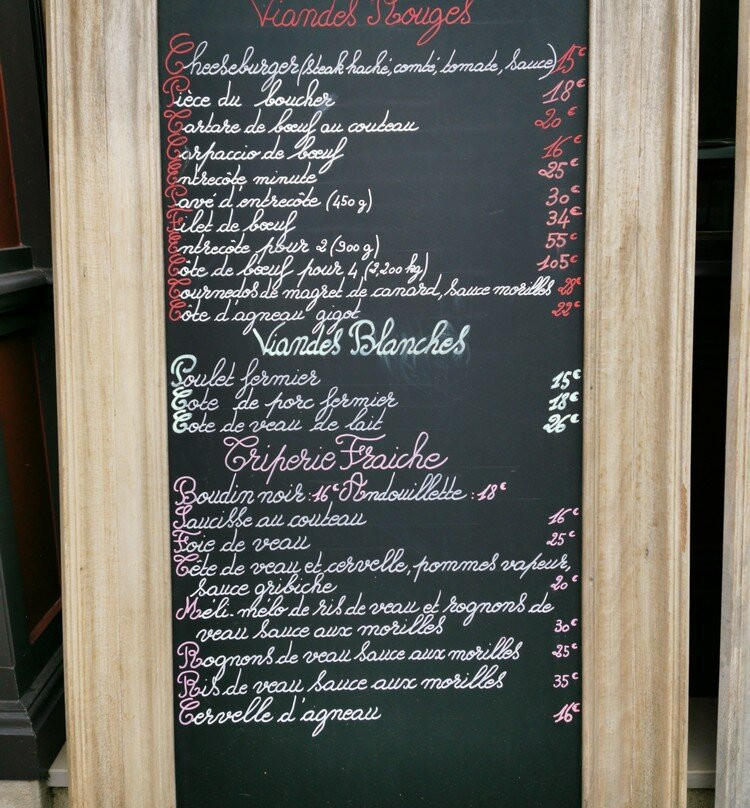 Viandes Rouges
Cheeseburger (steak haché, comté, tomate, sauce) 15€
Pièce du boucher 18€
Tartare de bœuf au couteau 20€
Carpaccio de bœuf 16€
Entrecôte minute 25€
Pavé d'entrecôte (450 g) 30€
Filet de bœuf 34€
Entrecôte pour 2 (900 g) 55€
Côte de bœuf pour 4 (2,200 kg) 105€
Tournedos de magret de canard, sauce morilles 28€
Côte d'agneau gigot 22€
Viandes Blanches
Poulet fermier 15€
Cote de porc fermier 18€
Cote de veau de lait 26€
Triperie Fraiche
Boudin noir : 16€ Andouillette : 18€
Saucisse au couteau 16€
Foie de veau 25€
Tête de veau et cervelle, pommes vapeur,
sauce gribiche 20€
Méli-mélo de ris de veau et rognons de
veau sauce aux morilles 30€
Rognons de veau sauce aux morilles 25€
Ris de veau sauce aux morilles 35€
Cervelle d'agneau 16€